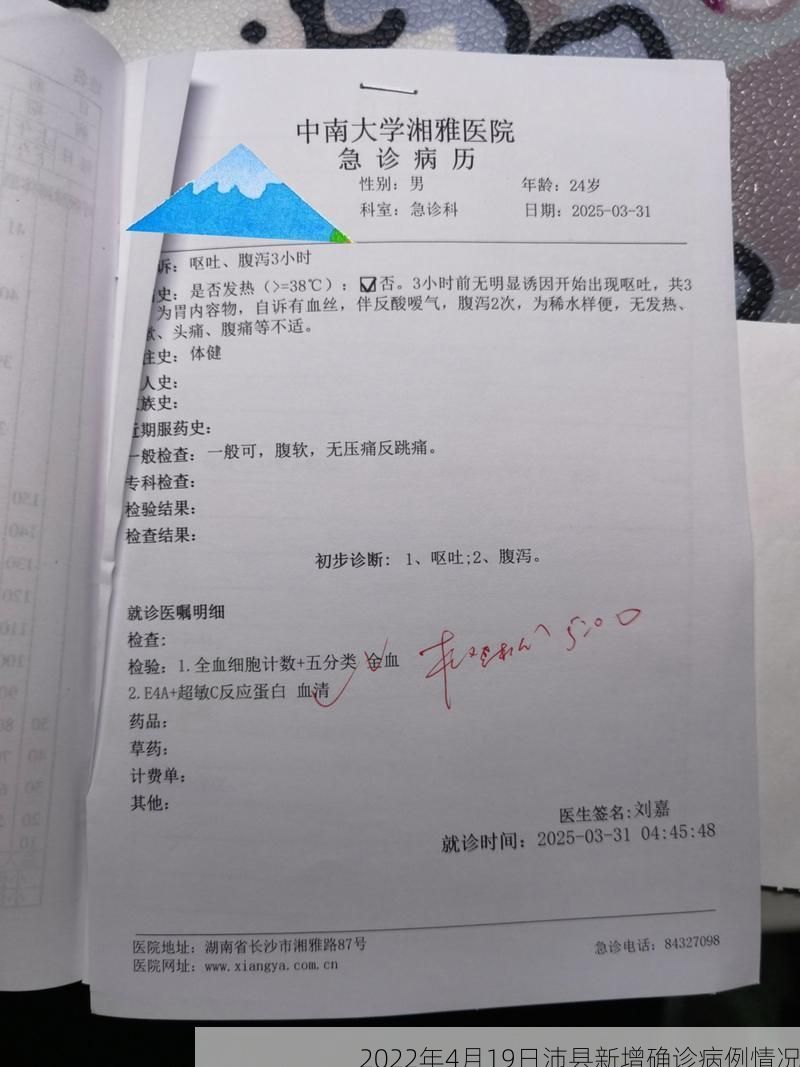 中南大学湘雅医院
急诊病历
性别：男 年龄：24岁
科室：急诊科 日期：2025-03-31
诉：呕吐、腹泻3小时
史：是否发热（>=38℃）：☑否。3小时前无明显诱因开始出现呕吐，共3
为胃内容物，自诉有血丝，伴反酸嗳气，腹泻2次，为稀水样便，无发热、
、头痛、腹痛等不适。
往史：体健
人史：
族史：
近期服药史：
一般检查：一般可，腹软，无压痛反跳痛。
专科检查：
检验结果：
检查结果：
初步诊断：1、呕吐;2、腹泻。
就诊医嘱明细
检查：
检验：1.全血细胞计数+五分类 全血
2.E4A+超敏C反应蛋白 血清
5:00
药品：
草药：
计费单：
其他：
医生签名:刘嘉
就诊时间：2025-03-31 04:45:48
医院地址：湖南省长沙市湘雅路87号 急诊电话：84327098
医院网址：www.xiangya.com.cn
2022年4月19日沛县新增确诊病例情况